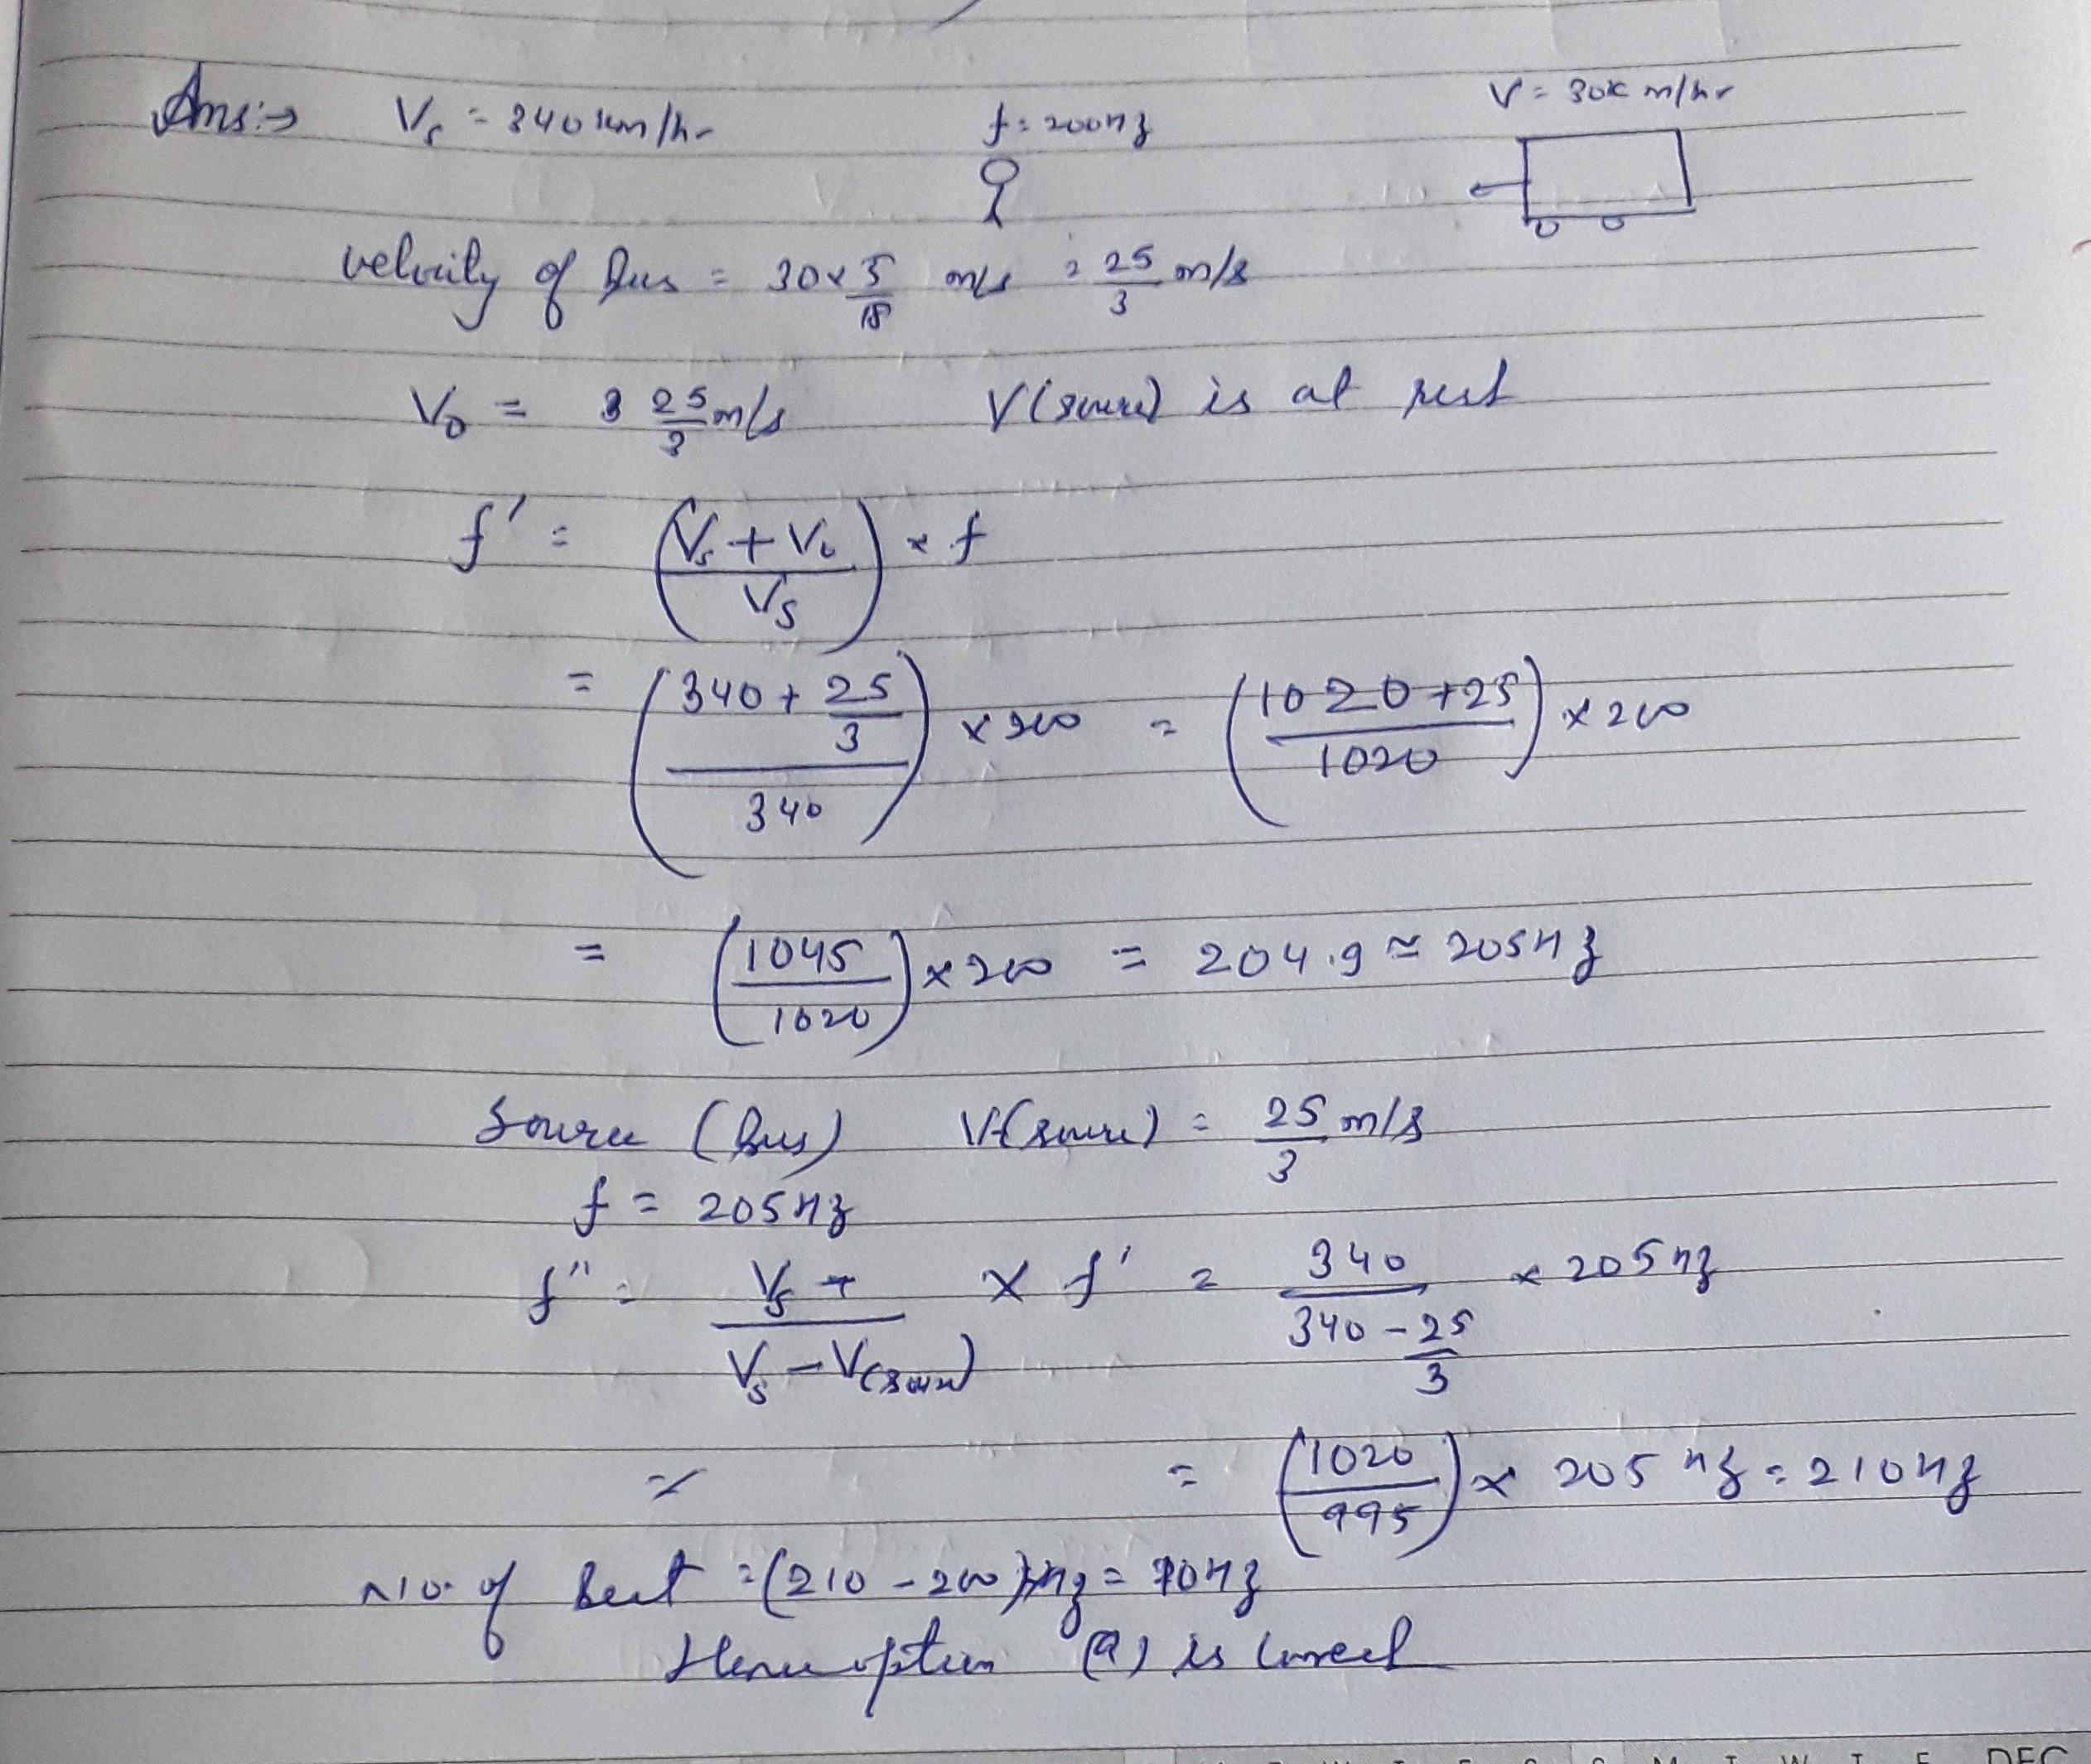 Ans:→ Vs = 340 km/hr f = 200Hz V = 30k m/hr
velocity of Bus = 30×5/18 m/s = 25/3 m/s
Vo = 25/3 m/s V(source) is at rest
f' = ((Vs + Vo)/Vs) × f
= ((340 + 25/3)/340) × 200 = ((1020+25)/1020) × 200
= (1045/1020) × 200 = 204.9 ≈ 205Hz
Source (Bus) V(source) = 25/3 m/s
f = 205Hz
f'' = Vs/(Vs - V(source)) × f' = 340/(340 - 25/3) × 205Hz
= (1020/995) × 205 Hz = 210Hz
No. of Beat = (210 - 200)Hz = 10Hz
Hence option (a) is correct
M T W T F DEC